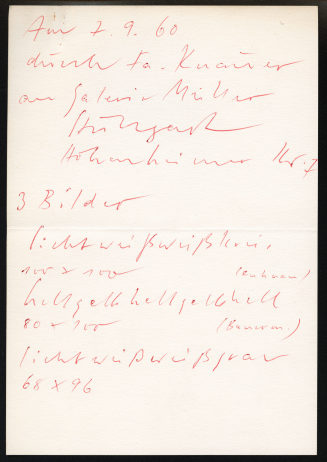 Am 7.9.60
durch Fa. Knauer
an Galerie Müller
Stuttgart
Hohenheimer Str. 7
3 Bilder
lichtweißweiß
100 x 100
hellgelbhellgelbhell
80 x 100
lichtweißweißgrau
68 x 96